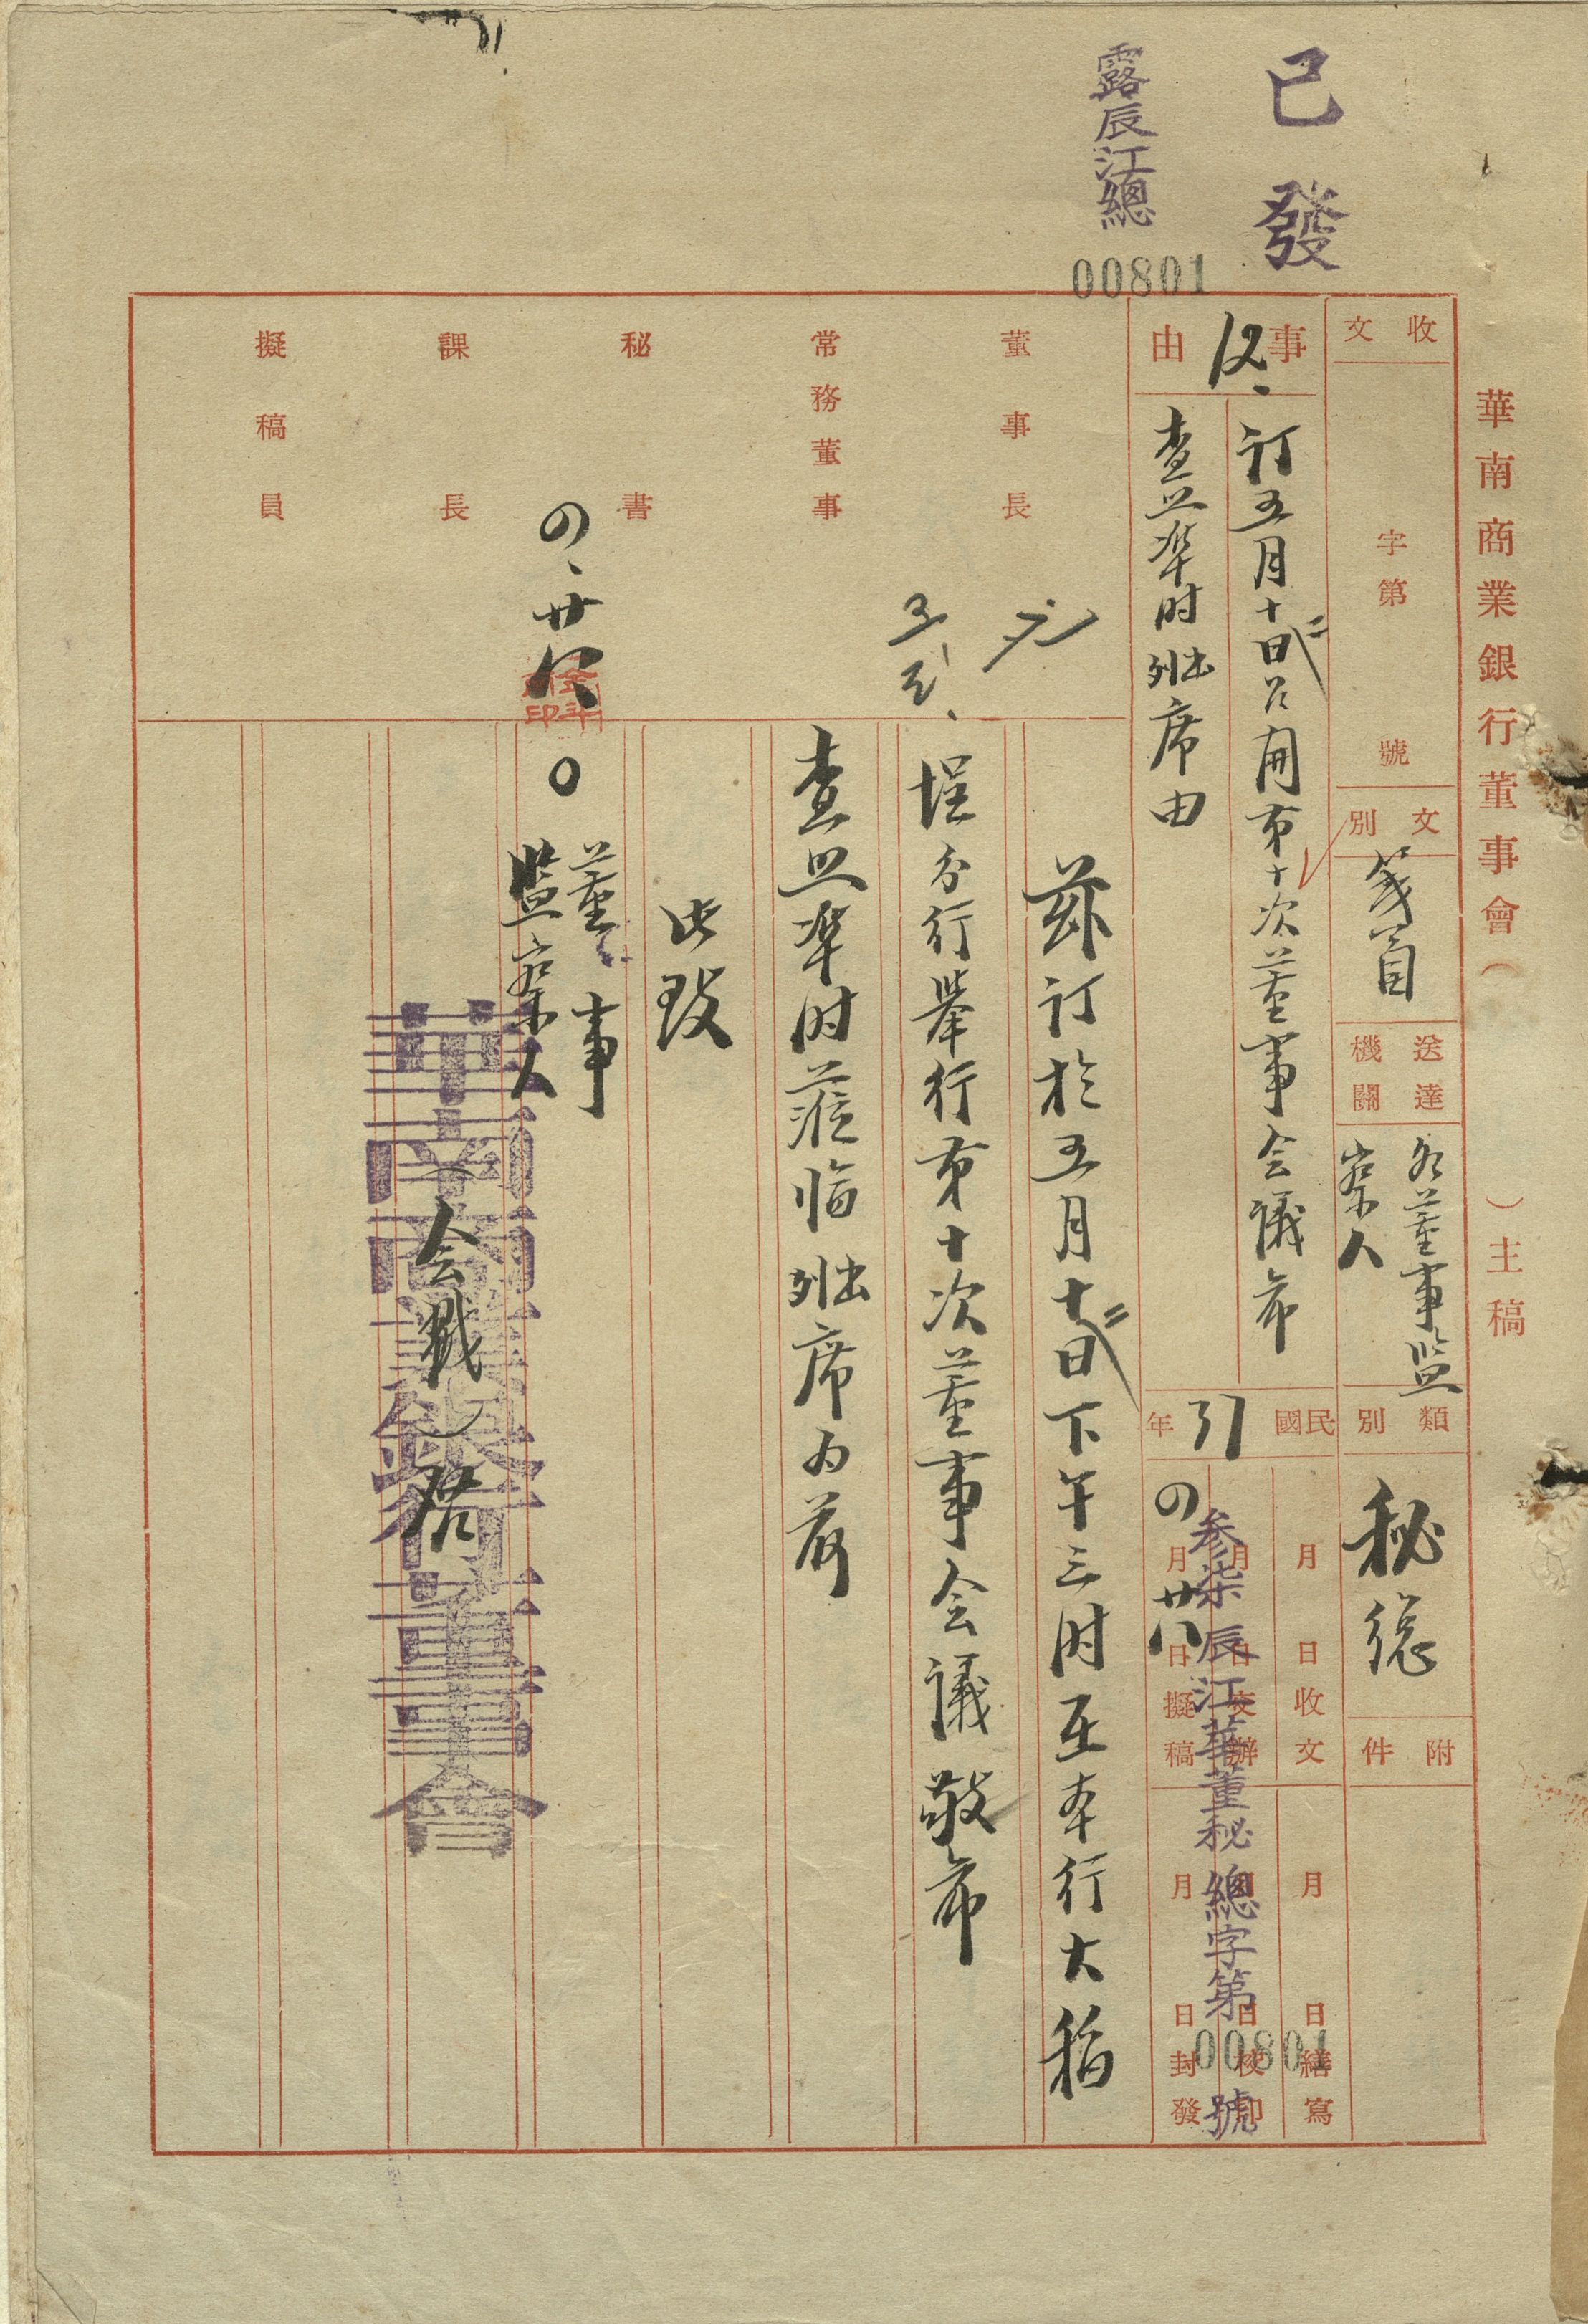 已發
露辰江總
00801
華南商業銀行董事會（　）主稿
收文
字第　號
文別
箋函
送達機關
各董事監
察人
類別
秘總
附件
事由
12.
訂五月十二日召開第十次董事会議希
查照準时出列席由
民國37年
月　日收文
月　日交辦
四月廿八日擬稿
月　日繕寫
月　日校印
月　日封發
参柒辰江華董秘總字第00801號
董事長
常務董事
秘書
課長
擬稿員
四、廿八
兹訂於五月十二日下午三时在本行大稻
埕分行舉行第十次董事会議敬希
查照準时蒞临出列席为荷
此致
○董事
監察人
（会戳）啓
華南商業銀行董事會